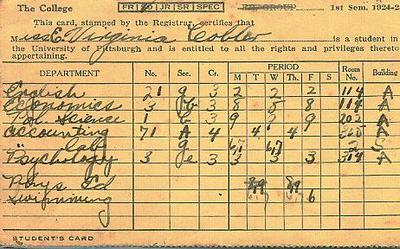 The College FR SO JR SR SPEC GROUP 1st Sem. 1924-2
This card, stamped by the Registrar, certifies that
Miss E. Virginia Cobler is a student in
the University of Pittsburgh and is entitled to all the rights and privileges thereto
appertaining.
DEPARTMENT No. Sec. Cr. PERIOD Room No. Building
M T W Th. F S
English 21 g 3 2 2 2 114 A
Economics 3 3 8 5 8 114 A
Pol. Science 1 3 9 2 9 202 A
Accounting 71 A 4 4 4 4 A
" Lab g 6,7 6,7 2 S
Psychology 3 3 3 3 3 314 A
Phys. Ed
Swimming 6
STUDENT'S CARD